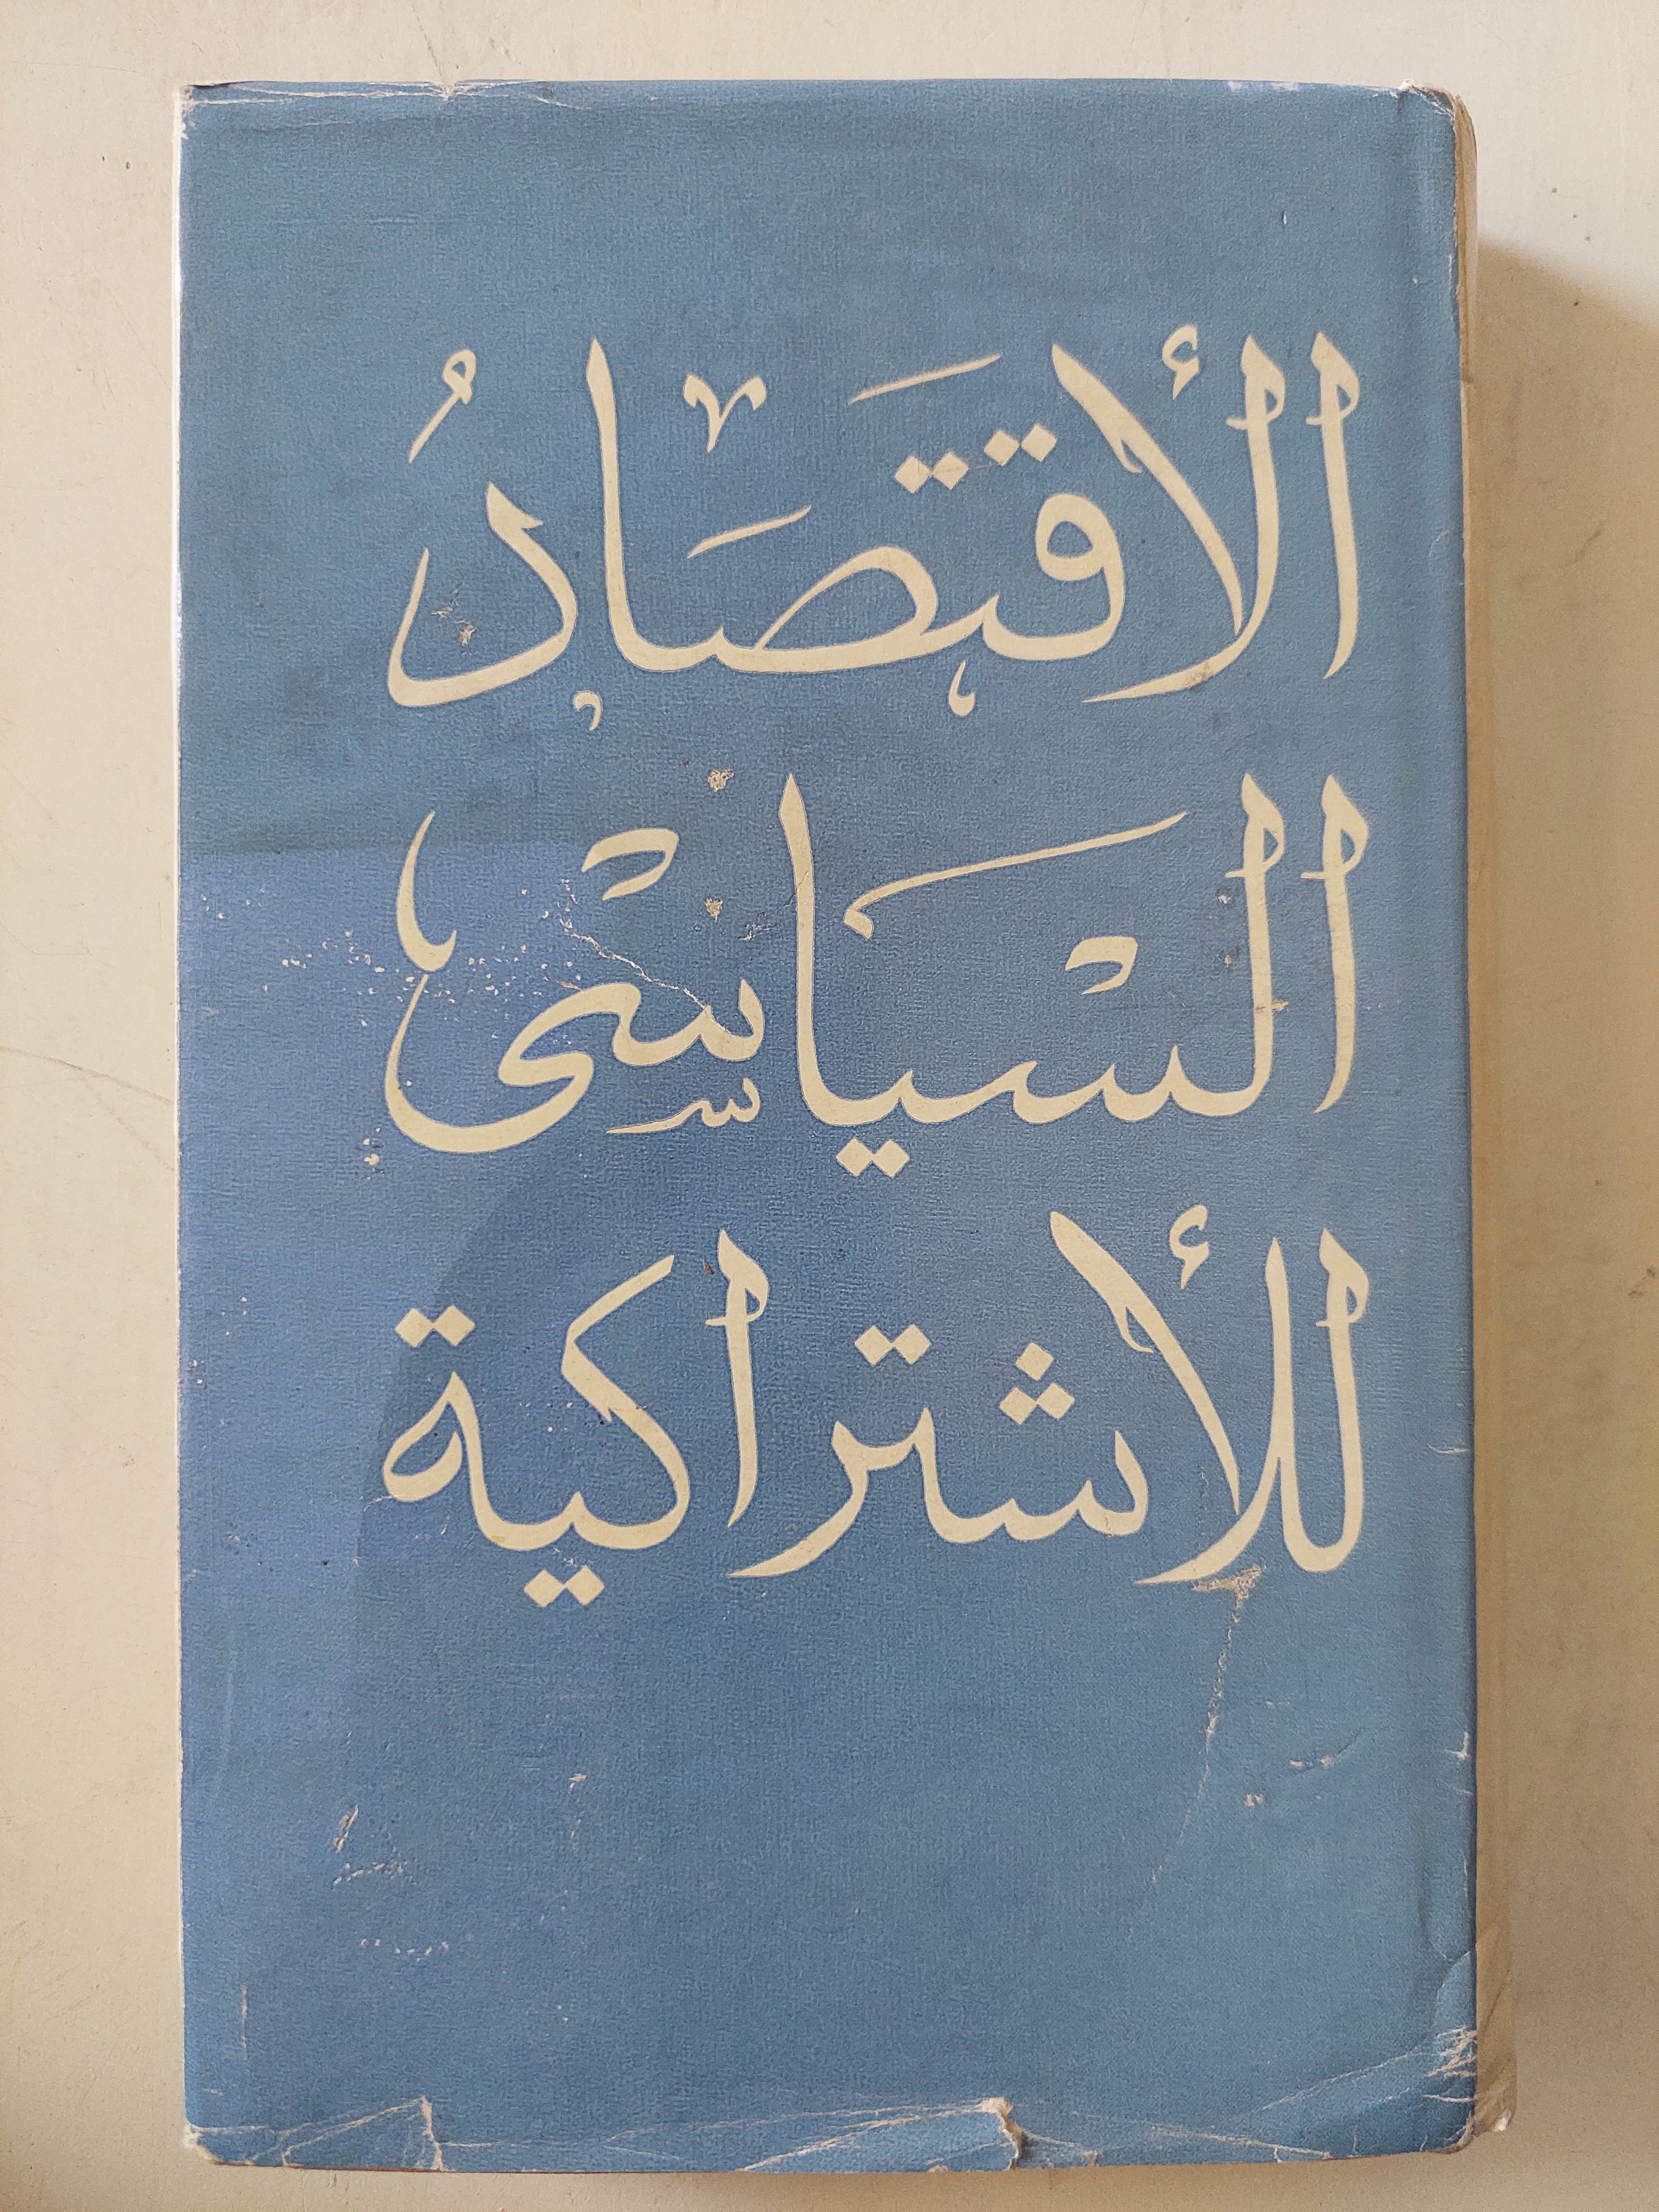 الأقتصادُ
السياسى
للأشتراكية